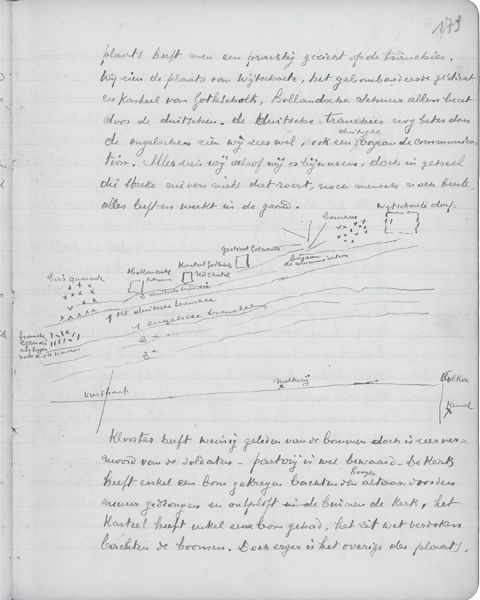 179
plaats heeft men een prachtig gezicht op de tranchées.
Wij zien de plaats van Wijtschaete, het gebombardeerde gesticht
en kasteel van Gothscholk, Hollandsche Scheure alles bezet
door de duitschen. De duitsche tranchées nog beter dan
de engelschen zien wij zeer wel, ook een boyau de communica-
duitsche
tion. Alles zien wij alsof wij er bij waren, doch in geheel
die streke nievers niets dat roert, noch mensch noch beeste,
alles leeft en werkt in de grond.
Wytschaete dorp
bosschen
gesticht Gothscholk
boyau
de communication
Hollandsche
Scheure
Kasteel
duitsche tranchée
1ste duitsche tranchée
1 engelsche tranchée
2e
3e
Vierstraat
Melkerij
Polka
Kemmel
Klooster heeft weinig geleden van de bommen doch is zeer ver-
moord van de soldaten – pastorij is wel bewaard – De Kerk
heeft enkel een bom gekregen bachten den altaar
hoogen
gedrongen en ontploft in de binnen de Kerk, het
Kasteel heeft enkel eene bom gehad, het zit wel verdoken
bachten de boomen. Doch erger is het overige der plaats,